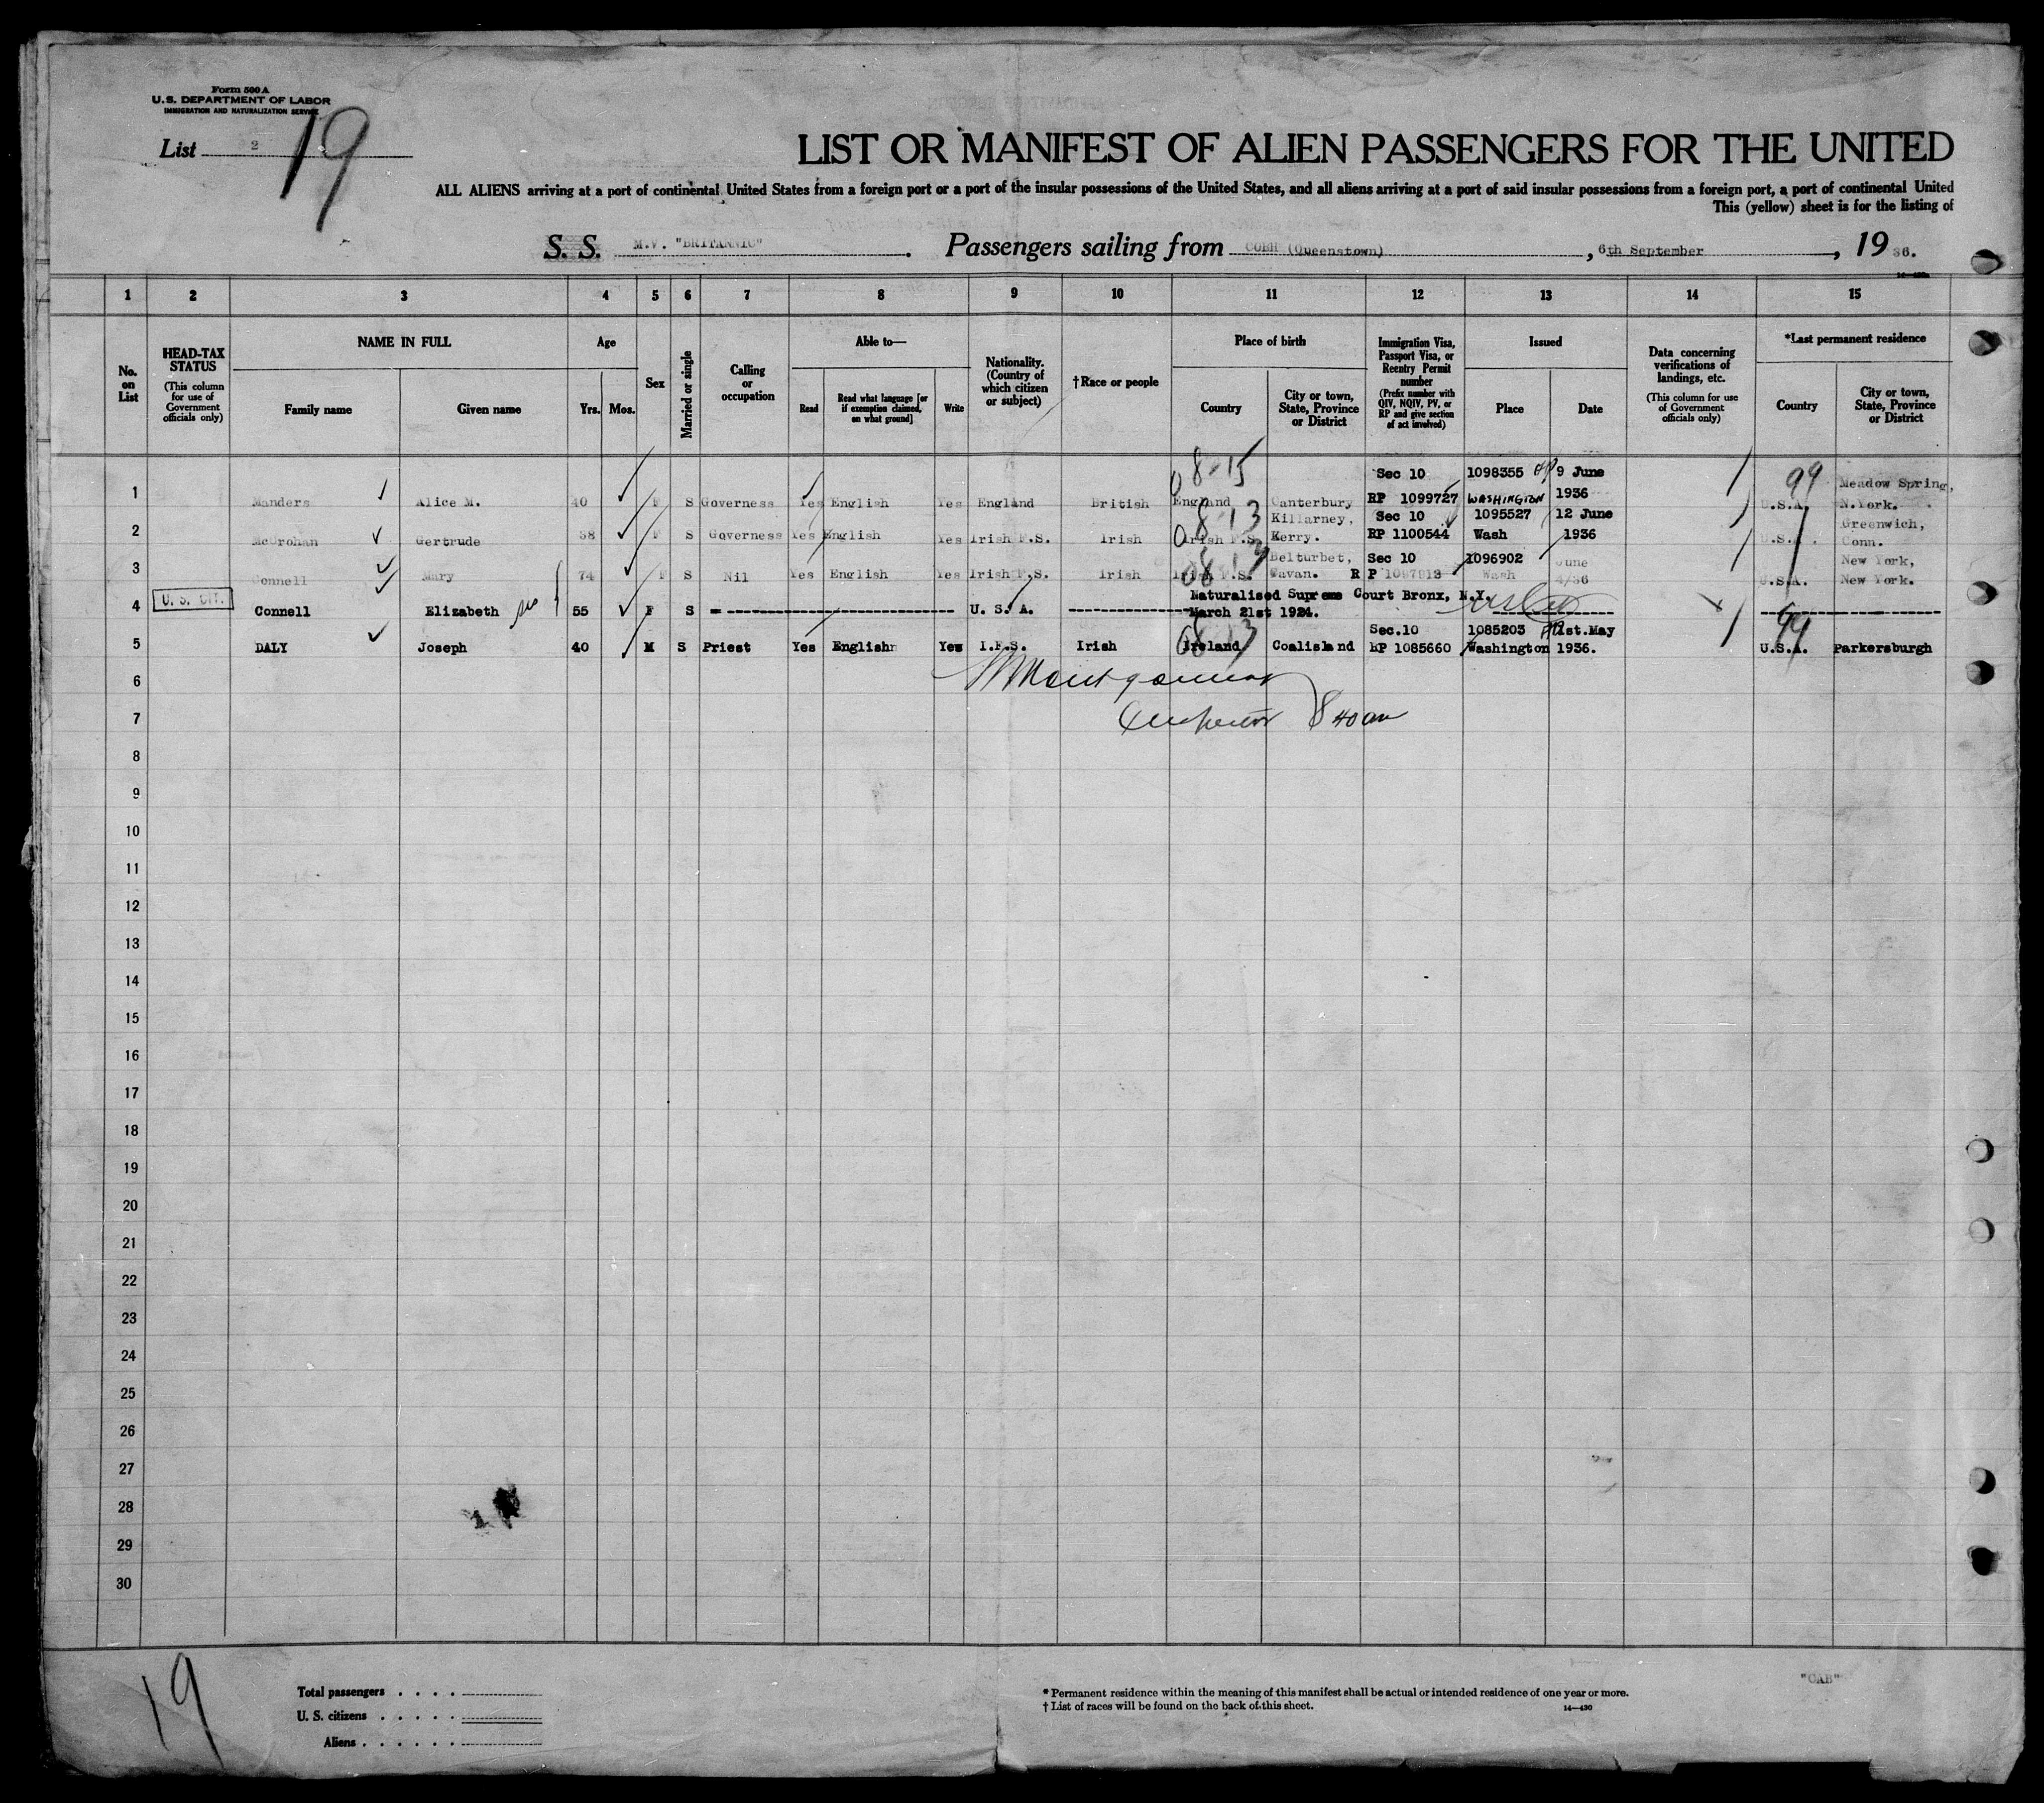 Form 500 A
U. S. DEPARTMENT OF LABOR
IMMIGRATION AND NATURALIZATION SERVICE
List 2
19
LIST OR MANIFEST OF ALIEN PASSENGERS FOR THE UNITED
ALL ALIENS arriving at a port of continental United States from a foreign port or a port of the insular possessions of the United States, and all aliens arriving at a port of said insular possessions from a foreign port, a port of continental United
This (yellow) sheet is for the listing of
S. S. M.V. "BRITANNIC". Passengers sailing from COBH (Queenstown), 6th September, 19 36.
1 2 3 4 5 6 7 8 9 10 11 12 13 14 15
No. on List
HEAD-TAX STATUS (This column for use of Government officials only)
NAME IN FULL
Family name
Given name
Age
Yrs. Mos.
Sex
Married or single
Calling or occupation
Able to—
Read
Read what language [or if exemption claimed, on what ground]
Write
Nationality. (Country of which citizen or subject)
†Race or people
Place of birth
Country
City or town, State, Province or District
Immigration Visa, Passport Visa, or Reentry Permit number (Prefix number with QIV, NQIV, PV, or RP and give section of act involved)
Issued
Place
Date
Data concerning verifications of landings, etc. (This column for use of Government officials only)
*Last permanent residence
Country
City or town, State, Province or District
08-15 Sec 10 1098355 9 June 99 Meadow Spring,
1 Manders Alice M. 40 F S Governess Yes English Yes England British England Canterbury RP 1099727 WASHINGTON 1936 U.S.A. N.York.
08-13 Killarney, Sec 10 1095527 12 June Greenwich,
2 McCrohan Gertrude 38 F S Governess Yes English Yes Irish F.S. Irish Irish F.S. Kerry. RP 1100544 Wash 1936 U.S.A. Conn.
Belturbet, Sec 10 1096902 June New York,
3 Connell Mary 74 F S Nil Yes English Yes Irish F.S. Irish Irish F.S. Cavan. R P 1097913 Wash 4/36 U.S.A. New York.
U. S. CIT.
Naturalised Supreme Court Bronx, N.Y.
4 Connell Elizabeth 55 F S U. S. A. March 21st 1924.
08-13 Sec.10 1085203 1st.May 99
5 DALY Joseph 40 M S Priest Yes English Yes I.F.S. Irish Ireland Coalisland RP 1085660 Washington 1936. U.S.A. Parkersburgh
6 Montgomery
7 Inspector 8 40 am
8
9
10
11
12
13
14
15
16
17
18
19
20
21
22
23
24
25
26
27
28
29
30
19
Total passengers
U. S. citizens
Aliens
* Permanent residence within the meaning of this manifest shall be actual or intended residence of one year or more.
† List of races will be found on the back of this sheet.
14—430
"CAB"